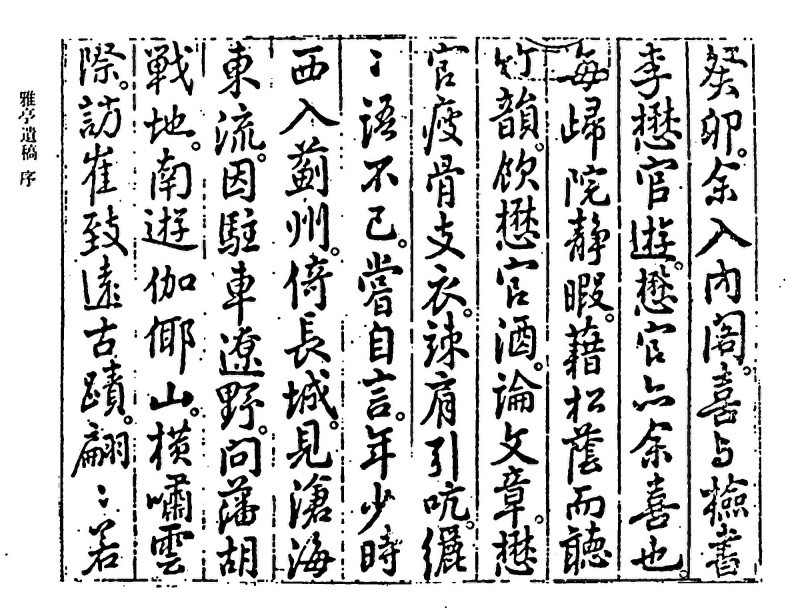 癸卯。余入內閣。喜与檢書
李懋官遊。懋官亦余喜也。
每歸院靜暇。藉松蔭而聽
竹韻。飲懋官酒。論文章。懋
官瘦骨支衣。竦肩引吭。纚
〻語不已。嘗自言。年少時
西入薊州。倚長城。見滄海
東流。因駐車遼野。问藩胡
戰地。南遊伽倻山。橫嘯雲
際。訪崔致遠古蹟。翩〻若
雅亭遺稿 序